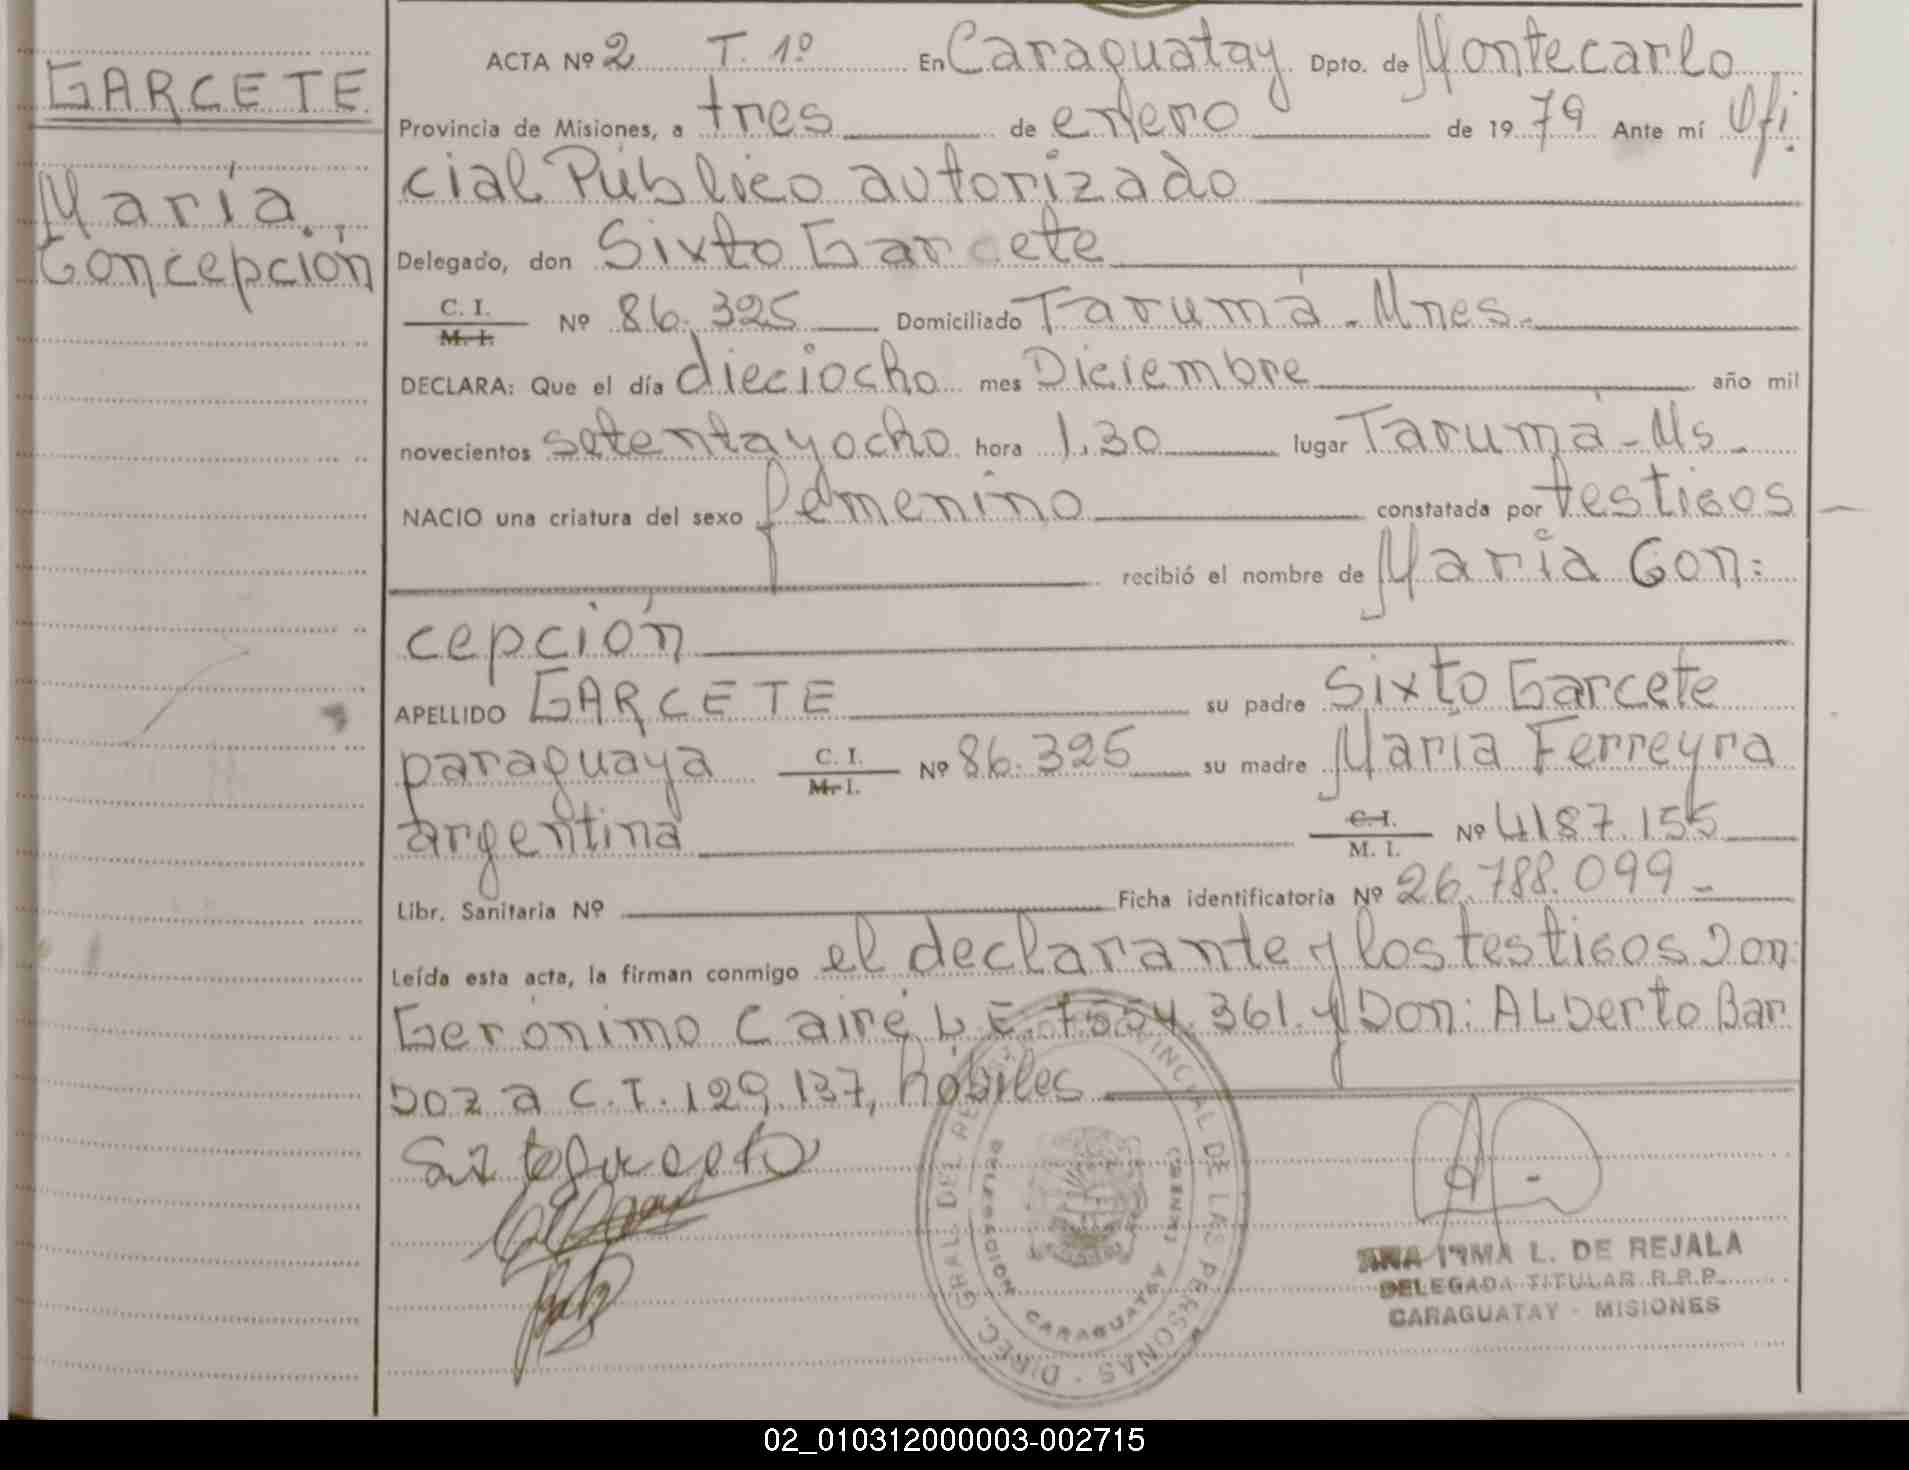 GARCETE
María
Concepción
ACTA Nº 2 T. 1º En Caraguatay Dpto. de Montecarlo
Provincia de Misiones, a tres de enero de 1979 Ante mí Ofi
cial Público autorizado
Delegado, don Sixto Garcete
C. I.
M. I. Nº 86.325 Domiciliado Tarumá - Mnes.
DECLARA: Que el día dieciocho mes Diciembre año mil
novecientos setenta y ocho hora 1.30 lugar Tarumá - Ms
NACIO una criatura del sexo femenino constatada por testigos
recibió el nombre de María Con:
cepción
APELLIDO GARCETE su padre Sixto Garcete
paraguaya C. I.
M. I. Nº 86.325 su madre María Ferreyra
argentina C. I.
M. I. Nº 4187.155
Libr. Sanitaria Nº Ficha identificatoria Nº 26.788.099
Leída esta acta, la firman conmigo el declarante y los testigos Don:
Gerónimo Cairé L.E. 7554.361. y Don: ALberto Bar
boza C.I. 129.137, hábiles
DIREC. GRAL. DEL REGISTRO PROVINCIAL DE LAS PERSONAS
DELEGACION CARAGUATAY (MISIONES)
ANA IRMA L. DE REJALA
DELEGADA TITULAR R.P.P.
CARAGUATAY - MISIONES
02_010312000003-002715